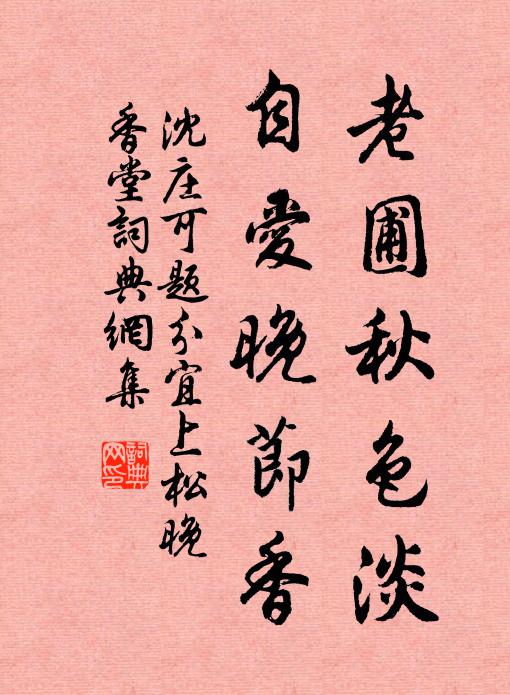 老圃秋色淡
自愛晚節香
沈庄可題分宜上松晚
香堂詞典網集
詞典
网印